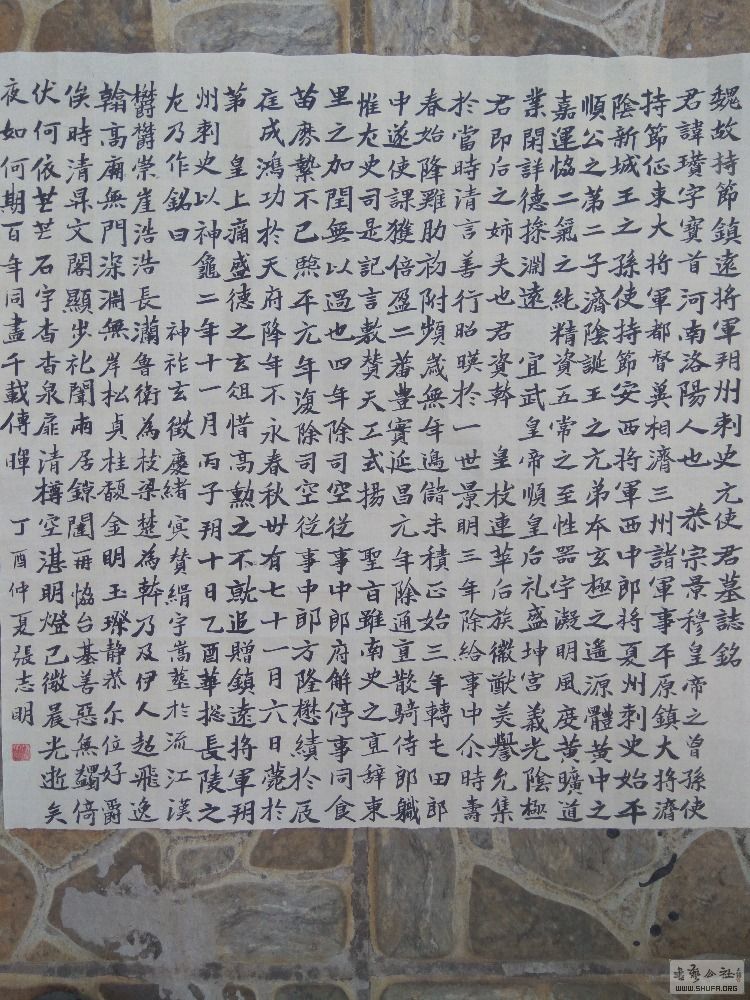 魏故持節鎮遠將軍朔州刺史元使君墓誌銘
君諱瓚字寶首河南洛陽人也 恭宗景穆皇帝之曾孫使
持節征東大將軍都督冀相濟三州諸軍事平原鎮大將濟
陰新城王之孫使持節安西將軍西中郎將夏州刺史始平
順公之第二子濟陰誕王之元弟本玄極之遥源體黄中之
嘉運恊二氣之純精資五常之至性器字凝明風度黄曠道
業閑詳德操淵遠 宣武皇帝順皇后礼盛坤宫義光陰極
君即后之姉夫也君資幹 皇枝連華后族徽猷美譽允集
於當時清言善行昭暎於一世景明三年除給事中尒時壽
春始降雞肋初附頻歲無年邊儲未積正始三年轉屯田郎
中遂使課獲倍盈二蕃豊實延昌元年除通直散騎侍郎軄
惟左史司是記言敷賛天工式揚 聖旨雖南史之直辞東
里之加閏無以過也四年除司空從事中郎府解停事同食
苗縻縶不已熙平元年復除司空從事中郎方隆懋績於辰
庭成鴻功於天府降年不永春秋卌有七十一月六日薨於
第 皇上痛盛德之玄俎惜高勲之不就追贈鎮遠將軍朔
州刺史以神龜二年十一月丙子朔十日乙酉華捴長陵之
左乃作銘曰 神祚玄徵慶緒冥賛緝宇嵩墓於流江漢
欝欝崇崖浩浩長瀾魯衛為枝梁楚為幹乃及伊人超飛逸
翰高廟無門深淵無岸松貞桂馥金明玉璨静恭尒位好爵
俟時清昇文閣顯步礼闈雨居鏡闈再恊台基善惡無蠲倚
伏何依芒芒石宇杳杳泉扉清樽空湛明燈已微晨光逝矣
夜如何期百年同盡千載傳暉 丁酉仲夏張志明
書藝公社
WWW.SHUFA.ORG